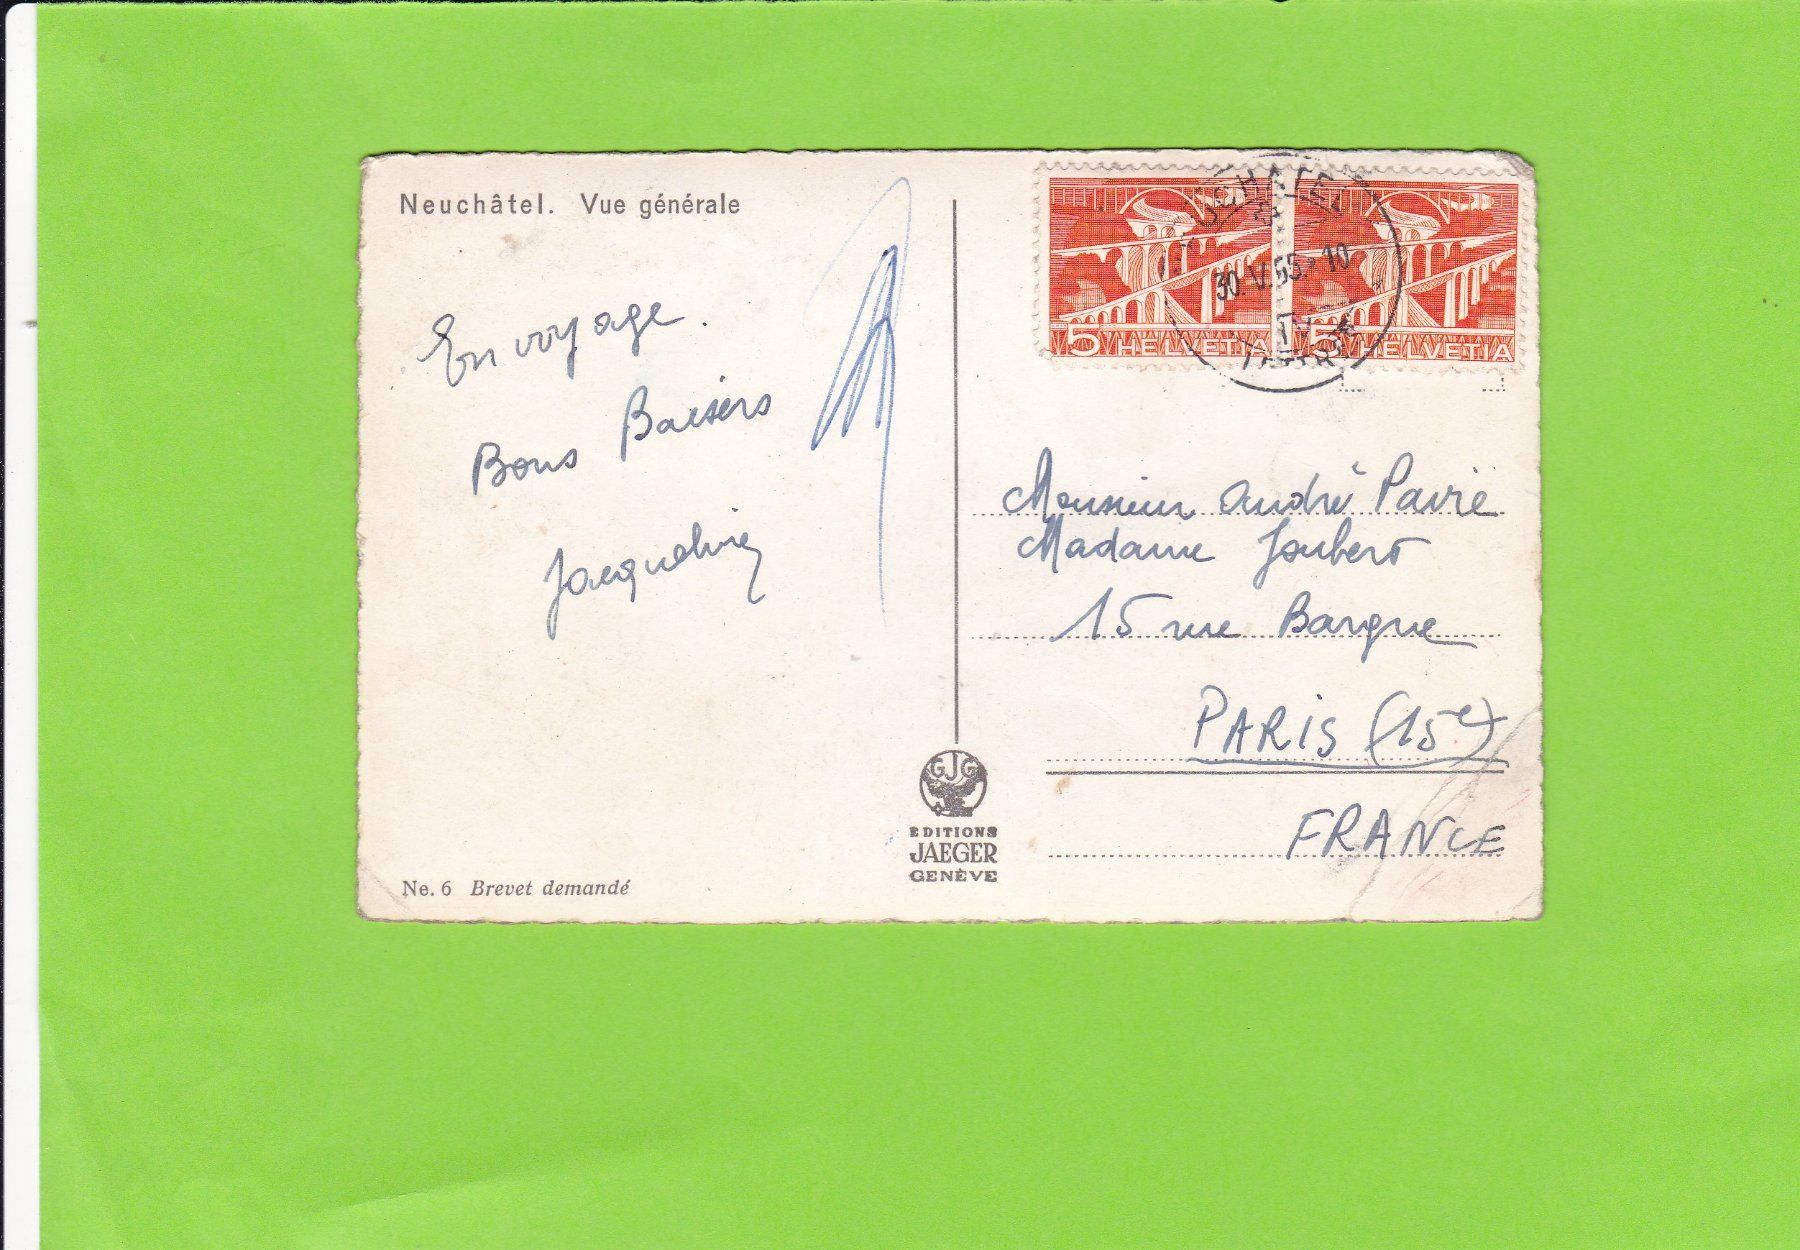 Neuchâtel. Vue générale
En voyage.
Bons Baisers
Jacqueline
5 HELVETIA
5 HELVETIA
30. V. 65. 10
Monsieur André Pavie
Madame Joubert
15 rue Bargue
PARIS (15e)
FRANCE
GJG
EDITIONS
JAEGER
GENÈVE
Ne. 6 Brevet demandé